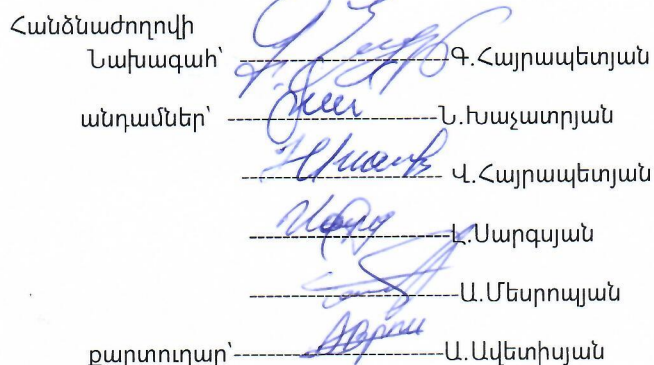 Հանձնաժողովի
Նախագահ՝ ---------------------Գ.Հայրապետյան
անդամներ՝ ---------------------Ն.Խաչատրյան
--------------------- Վ.Հայրապետյան
---------------------Լ.Սարգսյան
---------------------Ա.Մեսրոպյան
քարտուղար՝---------------------Ա.Ավետիսյան